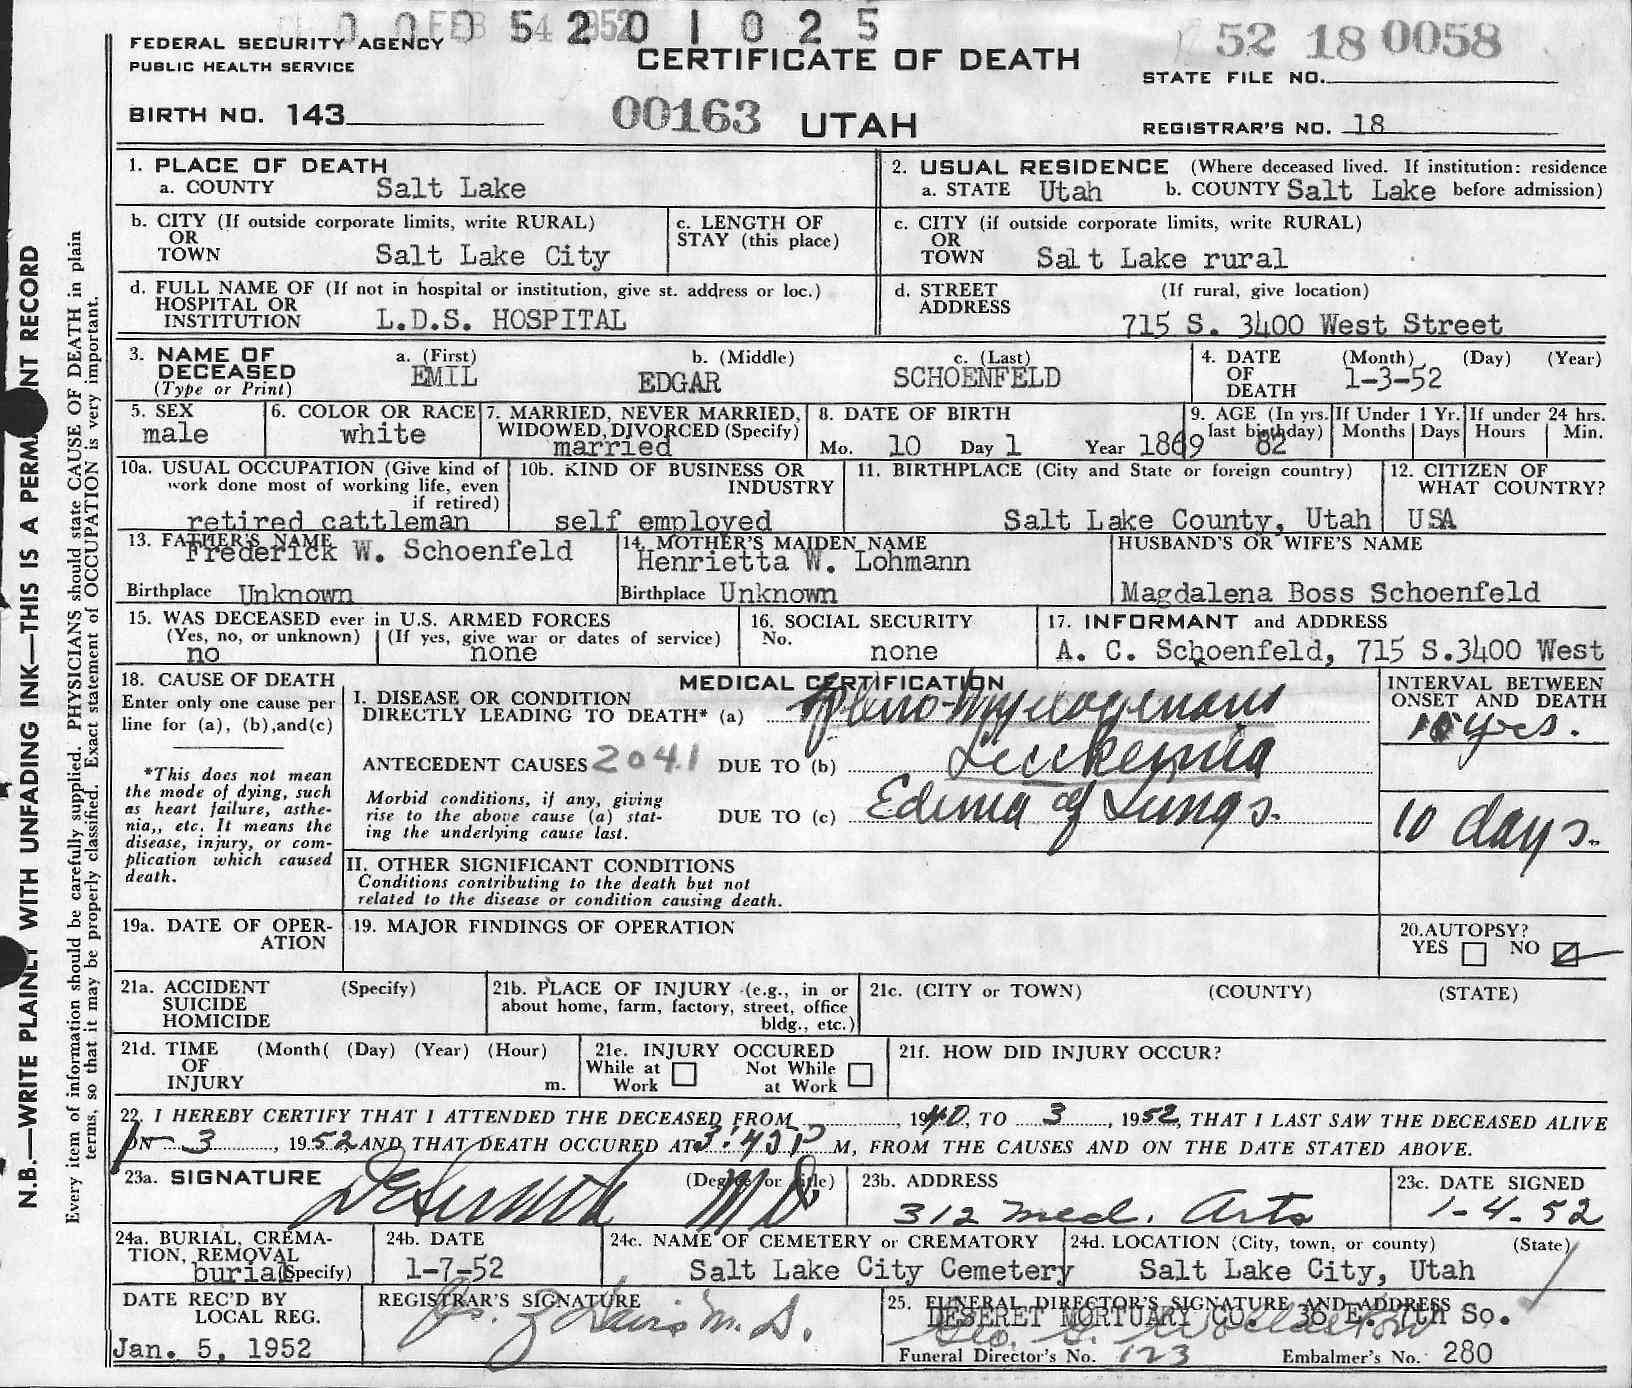 0 0 0 5 2 0 1 0 2 5
FEB 4 1952
FEDERAL SECURITY AGENCY
PUBLIC HEALTH SERVICE
CERTIFICATE OF DEATH
52 18 0058
STATE FILE NO.
BIRTH NO. 143
00163 UTAH
REGISTRAR'S NO. 18
1. PLACE OF DEATH
a. COUNTY Salt Lake
2. USUAL RESIDENCE (Where deceased lived. If institution: residence
a. STATE Utah b. COUNTY Salt Lake before admission)
b. CITY (If outside corporate limits, write RURAL)
OR
TOWN Salt Lake City
c. LENGTH OF
STAY (this place)
c. CITY (if outside corporate limits, write RURAL)
OR
TOWN Salt Lake rural
d. FULL NAME OF (If not in hospital or institution, give st. address or loc.)
HOSPITAL OR
INSTITUTION L.D.S. HOSPITAL
d. STREET (If rural, give location)
ADDRESS
715 S. 3400 West Street
3. NAME OF
DECEASED
(Type or Print)
a. (First)
EMIL
b. (Middle)
EDGAR
c. (Last)
SCHOENFELD
4. DATE (Month) (Day) (Year)
OF
DEATH 1-3-52
5. SEX
male
6. COLOR OR RACE
white
7. MARRIED, NEVER MARRIED,
WIDOWED, DIVORCED (Specify)
married
8. DATE OF BIRTH
Mo. 10 Day 1 Year 1869
9. AGE (In yrs.
last birthday) 82
If Under 1 Yr.
Months Days
If under 24 hrs.
Hours Min.
10a. USUAL OCCUPATION (Give kind of
work done most of working life, even
if retired)
retired cattleman
10b. KIND OF BUSINESS OR
INDUSTRY
self employed
11. BIRTHPLACE (City and State or foreign country)
Salt Lake County, Utah
12. CITIZEN OF
WHAT COUNTRY?
USA
13. FATHER'S NAME
Frederick W. Schoenfeld
Birthplace Unknown
14. MOTHER'S MAIDEN NAME
Henrietta W. Lohmann
Birthplace Unknown
HUSBAND'S OR WIFE'S NAME
Magdalena Boss Schoenfeld
15. WAS DECEASED ever in U.S. ARMED FORCES
(Yes, no, or unknown) (If yes, give war or dates of service)
no none
16. SOCIAL SECURITY
No.
none
17. INFORMANT and ADDRESS
A. C. Schoenfeld, 715 S.3400 West
18. CAUSE OF DEATH
Enter only one cause per
line for (a), (b),and(c)
*This does not mean
the mode of dying, such
as heart failure, asthe-
nia,, etc. It means the
disease, injury, or com-
plication which caused
death.
MEDICAL CERTIFICATION
I. DISEASE OR CONDITION
DIRECTLY LEADING TO DEATH* (a) Spleno-Myelogenous
ANTECEDENT CAUSES 2041 DUE TO (b) Leukemia
Morbid conditions, if any, giving
rise to the above cause (a) stat-
ing the underlying cause last.
DUE TO (c) Edema of Lungs.
INTERVAL BETWEEN
ONSET AND DEATH
10 yrs.
10 days.
II. OTHER SIGNIFICANT CONDITIONS
Conditions contributing to the death but not
related to the disease or condition causing death.
19a. DATE OF OPER-
ATION
19. MAJOR FINDINGS OF OPERATION
20.AUTOPSY?
YES NO
21a. ACCIDENT (Specify)
SUICIDE
HOMICIDE
21b. PLACE OF INJURY (e.g., in or
about home, farm, factory, street, office
bldg., etc.)
21c. (CITY or TOWN) (COUNTY) (STATE)
21d. TIME (Month( (Day) (Year) (Hour)
OF
INJURY m.
21e. INJURY OCCURED
While at Not While
Work at Work
21f. HOW DID INJURY OCCUR?
22. I HEREBY CERTIFY THAT I ATTENDED THE DECEASED FROM 1940, TO 3 1952, THAT I LAST SAW THE DECEASED ALIVE
ON 1-3 1952, AND THAT DEATH OCCURED AT 3:43 P M, FROM THE CAUSES AND ON THE DATE STATED ABOVE.
23a. SIGNATURE (Degree or title)
M D
23b. ADDRESS
312 Med. Arts
23c. DATE SIGNED
1-4-52
24a. BURIAL, CREMA-
TION, REMOVAL
burial (Specify)
24b. DATE
1-7-52
24c. NAME OF CEMETERY or CREMATORY
Salt Lake City Cemetery
24d. LOCATION (City, town, or county) (State)
Salt Lake City, Utah
DATE REC'D BY
LOCAL REG.
Jan. 5, 1952
REGISTRAR'S SIGNATURE
M. D.
25. FUNERAL DIRECTOR'S SIGNATURE AND ADDRESS
DESERET MORTUARY CO. 36 E. 7th So.
Funeral Director's No. 123 Embalmer's No. 280
N.B.—WRITE PLAINLY WITH UNFADING INK—THIS IS A PERMANENT RECORD
Every item of information should be carefully supplied. PHYSICIANS should state CAUSE OF DEATH in plain
terms, so that it may be properly classified. Exact statement of OCCUPATION is very important.